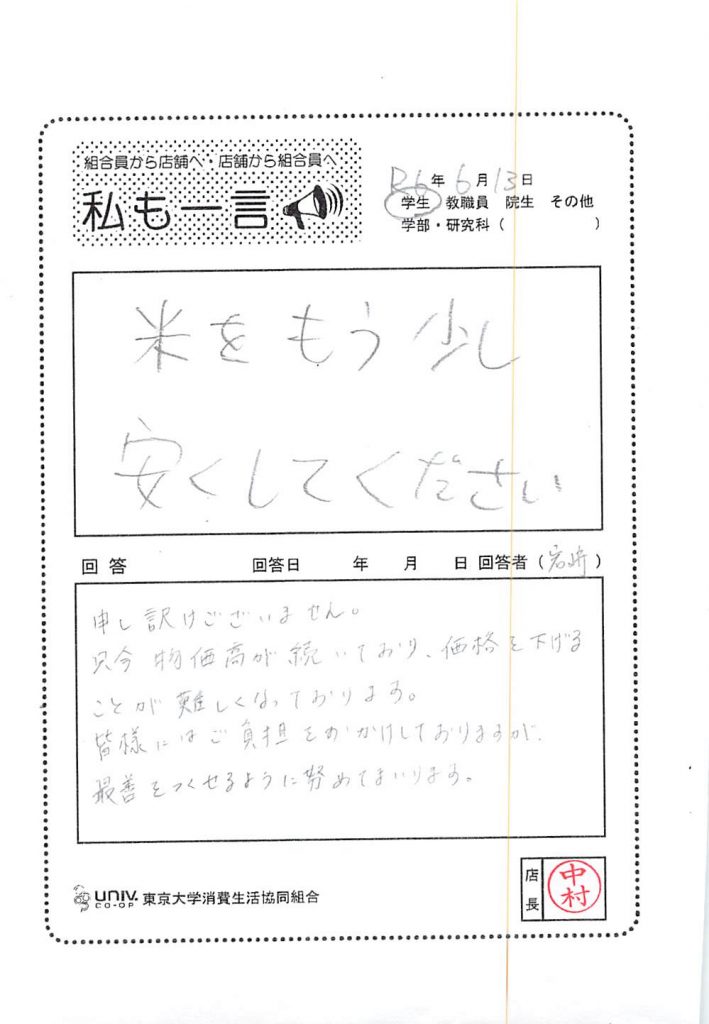 組合員から店舗へ・店舗から組合員へ
私も一言
R6年6月13日
学生 教職員 院生 その他
学部・研究科（　　　　　）
米をもう少し
安くしてください
回答 回答日 年 月 日 回答者（岩崎）
申し訳けございません。
只今物価高が続いており、価格を下げる
ことが難しくなっております。
皆様にはご負担をおかけしておりますが、
最善をつくせるように努めてまいります。
UNIV. CO-OP 東京大学消費生活協同組合
店長 中村